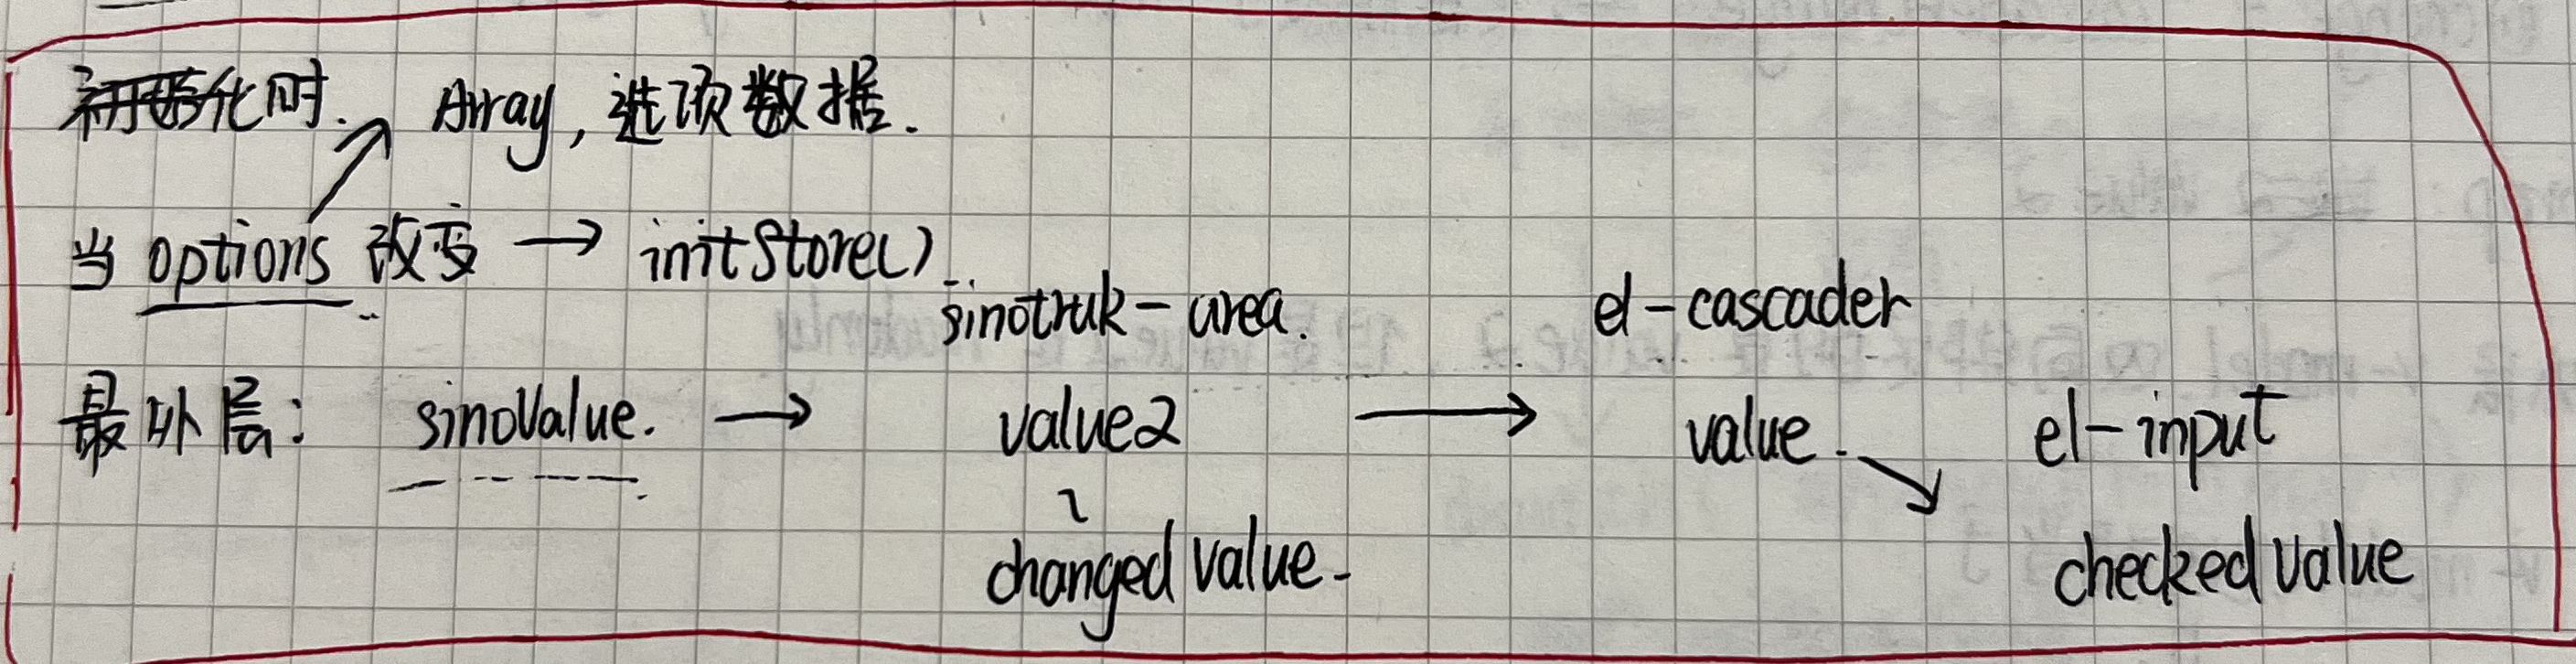 初始化时. Array, 选项数据.
当 options 改变 → initStore()
sinotruk-area. el-cascader
最外层: sinoValue. → value2 → value. ↘ el-input
changed value. checked value